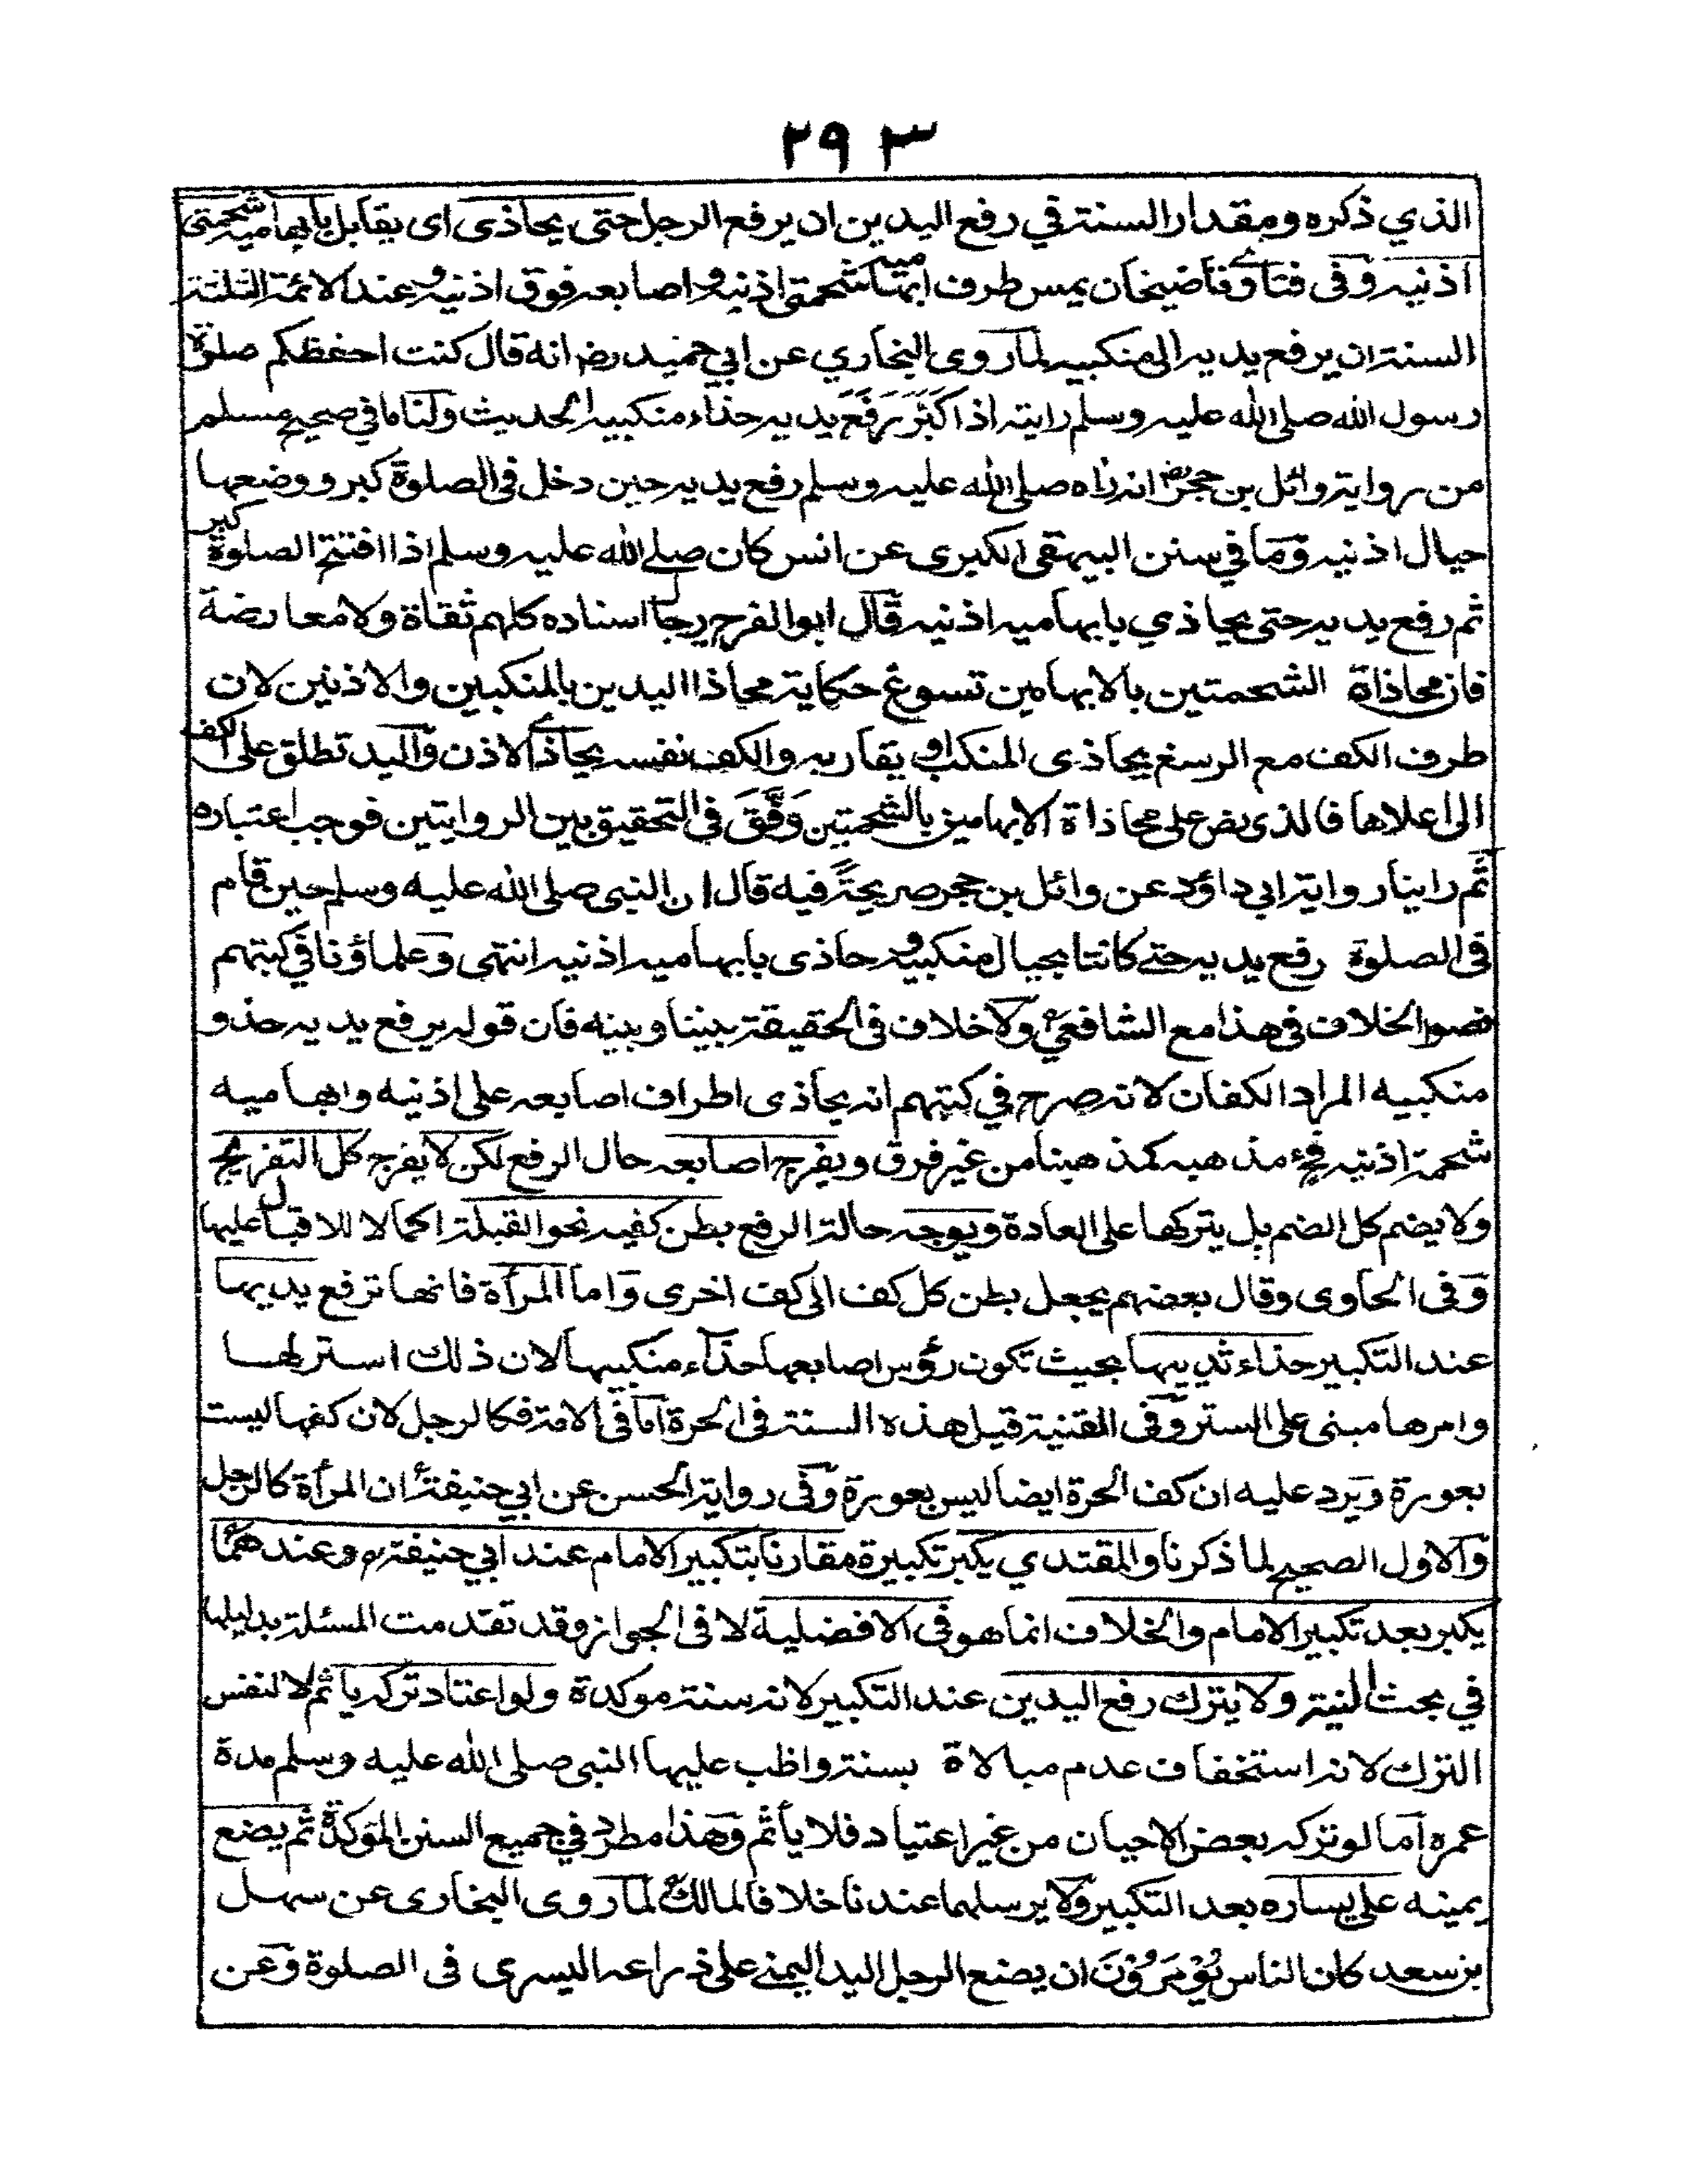 ٢٩٣
الذي ذكره ومقدار السنة في رفع اليدين ان يرفع الرجل حتى يحاذى اى يقابل بابهاميه شحمتى
اذنيه وفى فتاوى قاضيخان يمس طرف ابهاميه شحمتى اذنيه واصابعه فوق اذنيه وعند الائمة الثلثة
السنة ان يرفع يديه الى منكبيه لما روى البخاري عن ابي حميد رضـ انه قال كنت احفظكم صلوة
رسول الله صلى الله عليه وسلم رايته اذا كَبَّرَ رَفَعَ يديه حذاء منكبيه الحديث ولنا ما في صحيح مسلم
من رواية وائل بن حجر رضـ انه رأه صلى الله عليه وسلم رفع يديه حين دخل فى الصلوة كبر ووضعها
حيال اذنيه وما في سنن البيهقى الكبرى عن انس كان صلے الله عليه وسلم اذا افتتح الصلوة كبر
ثم رفع يديه حتى يحاذي بابهاميه اذنيه قال ابو الفرج رجال اسناده كلهم ثقاة ولا معارضة
فان محاذاة الشحمتين بالابهامين تسوغ حكاية محاذا اليدين بالمنكبين والاذنين لان
طرف الكف مع الرسغ يحاذى المنكب او يقاربه والكف نفسه يحاذى الاذن واليد تطلق على الكف
الى اعلاها فالذى نص على محاذاة الابهامين بالشحمتين وَفَّقَ فى التحقيق بين الروايتين فوجب اعتباره
ثم راينا رواية ابي داؤد عن وائل بن حجر صريحةً فيه قال ان النبى صلى الله عليه وسلم حين قام
فى الصلوة رفع يديه حتے كانتا بحيال منكبيه وحاذى بابهاميه اذنيه انتهى وعلماؤنا في كتبهم
نصوا الخلاف فى هذا مع الشافعيؒ ولا خلاف فى الحقيقة بيننا وبينه فان قوله يرفع يديه حذو
منكبيه المراد الكفان لانه صرح في كتبهم انه يحاذى اطراف اصابعه على اذنيه وابهاميه
شحمة اذنيه فح مذهبه كمذهبنا من غير فرق ويفرج اصابعه حال الرفع لكن لا يفرج كل التفريج
ولا يضم كل الضم بل يتركها على العادة ويوجه حالة الرفع بطن كفيه نحو القبلة اكمالا للاقبال عليها
وفى الحاوى وقال بعضهم يجعل بطن كل كف الى كف اخرى واما المرأة فانها ترفع يديها
عند التكبير حذاء ثدييها بحيث تكون رؤس اصابعها حذاء منكبيها لان ذلك استر لها
وامرها مبنى على الستر وفى القنية قيل هذه السنة فى الحرة اما فى الامة فكالرجل لان كفها ليست
بعورة ويرد عليه ان كف الحرة ايضا ليس بعورة وفى رواية الحسن عن ابي حنيفةؒ ان المرأة كالرجل
والاول الصحيح لما ذكرنا والمقتدي يكبر تكبيرة مقارنا بتكبير الامام عند ابي حنيفةؒ وعندهماؒ
يكبر بعد تكبير الامام والخلاف انما هو فى الافضلية لا فى الجواز وقد تقدمت المسئلة بدليلها
في بحث النية ولا يترك رفع اليدين عند التكبير لانه سنة موكدة ولو اعتاد تركه يأثم لا لنفس
الترك لانه استخفاف عدم مبالاة بسنة واظب عليها النبى صلى الله عليه وسلم مدة
عمره اما لو تركه بعض الاحيان من غير اعتياد فلا يأثم وهذا مطرد في جميع السنن الموكدة ثم يضع
يمينه على يساره بعد التكبير ولا يرسلهما عندنا خلافا لمالكؒ لما روى البخارى عن سهل
بن سعد كان الناس يُؤْمَرُوْنَ ان يضع الرجل اليد اليمنے على ذراعه اليسرى فى الصلوة وعن